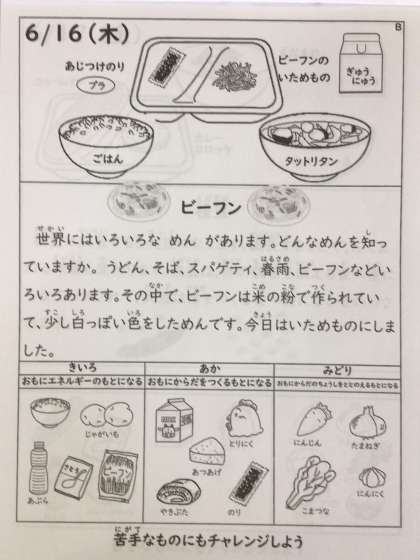 B
6/16(木)
あじつけのり
プラ
ビーフンの
いためもの
ぎゅう
にゅう
ごはん
タットリタン
ビーフン
世界にはいろいろな めん があります。どんなめんを知っ
ていますか。うどん、そば、スパゲティ、春雨、ビーフンなどい
ろいろあります。その中で、ビーフンは米の粉で作られてい
て、少し白っぽい色をしためんです。今日はいためものにしま
した。
きいろ あか みどり
おもにエネルギーのもとになる おもにからだをつくるもとになる おもにからだのちょうしをととのえるもとになる
じゃがいも とりにく にんじん たまねぎ
あつあげ
あぶら さとう ビーフン やきぶた のり こまつな にんにく
苦手なものにもチャレンジしよう